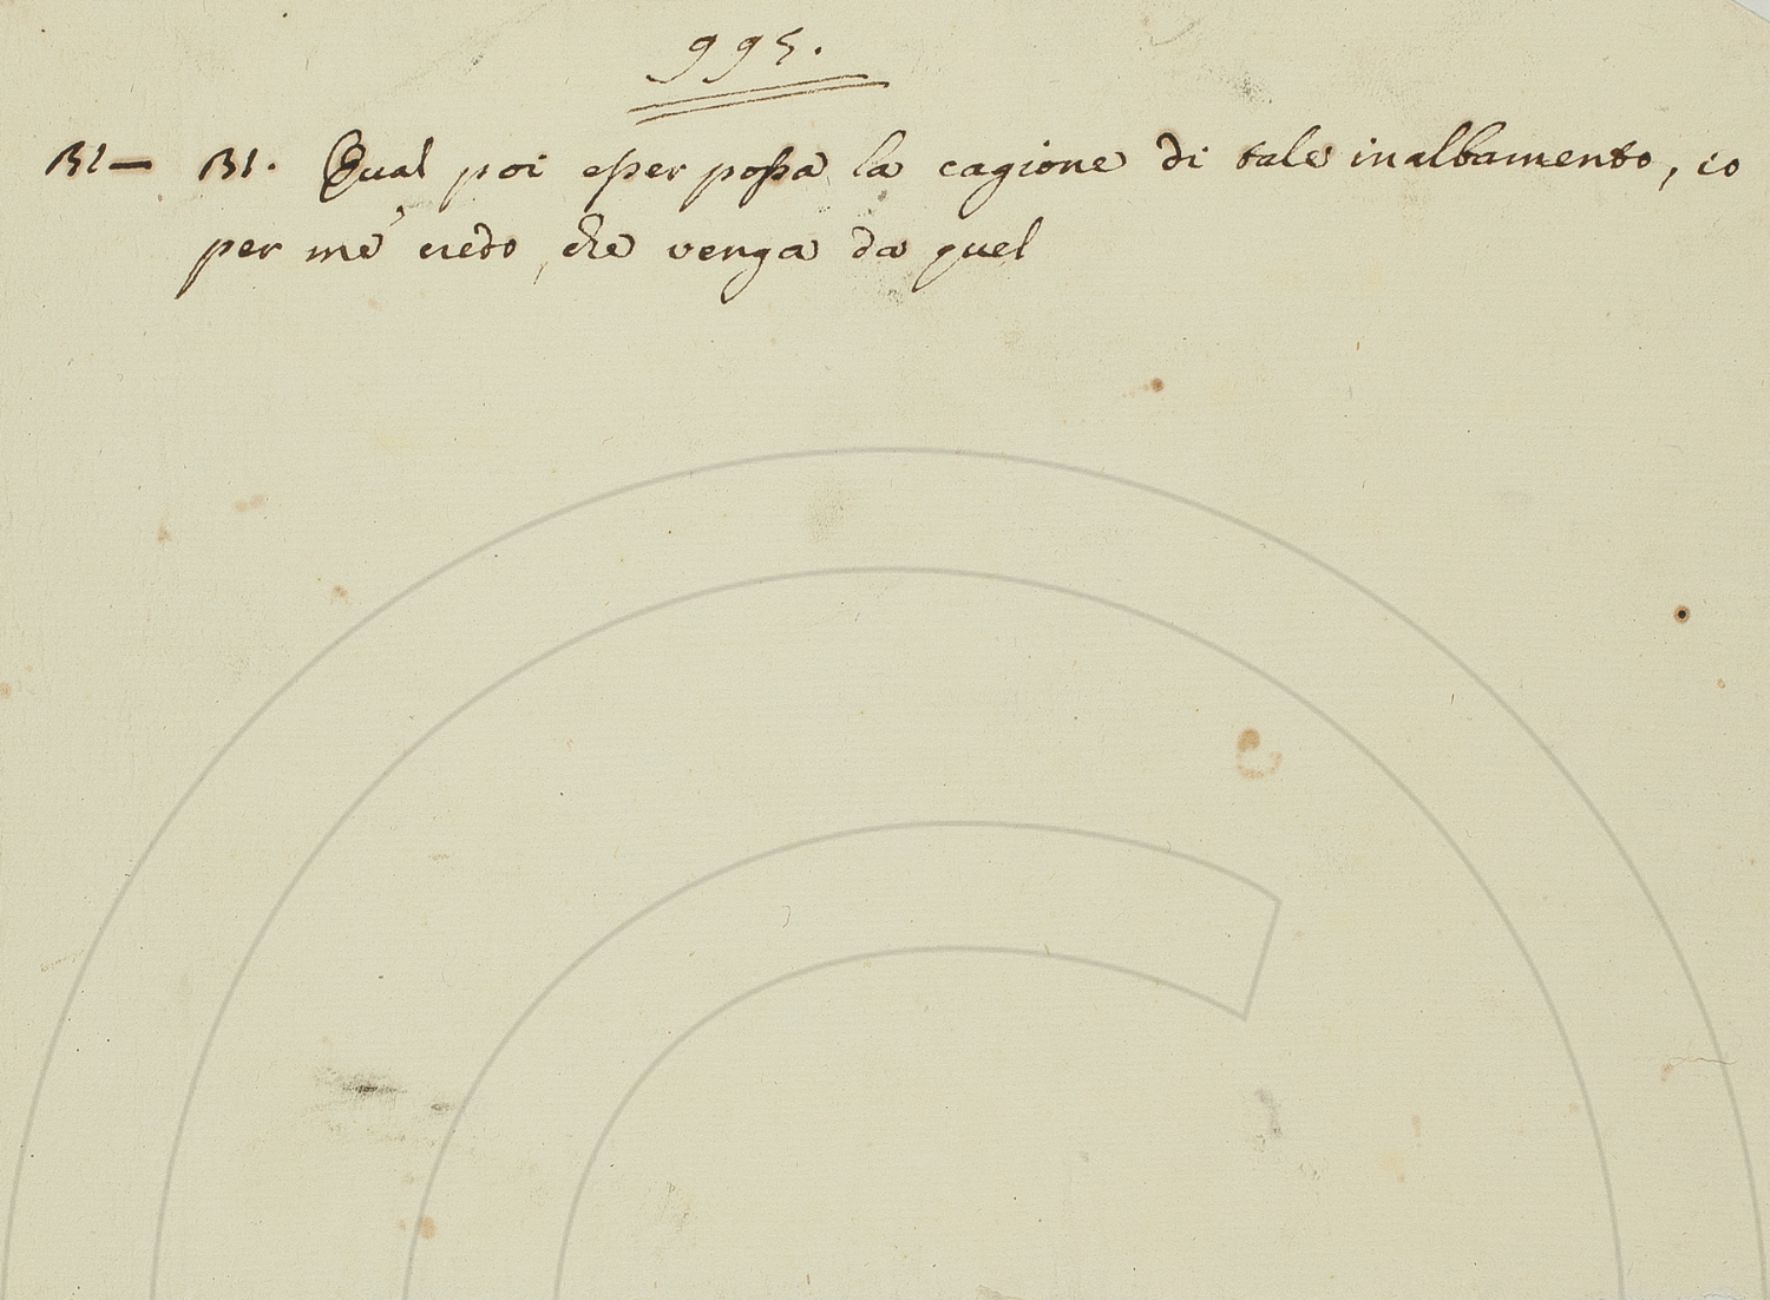 995.
131— 131. Qual poi esser possa la cagione di tale inalbamento, io
per me credo, che venga da quel